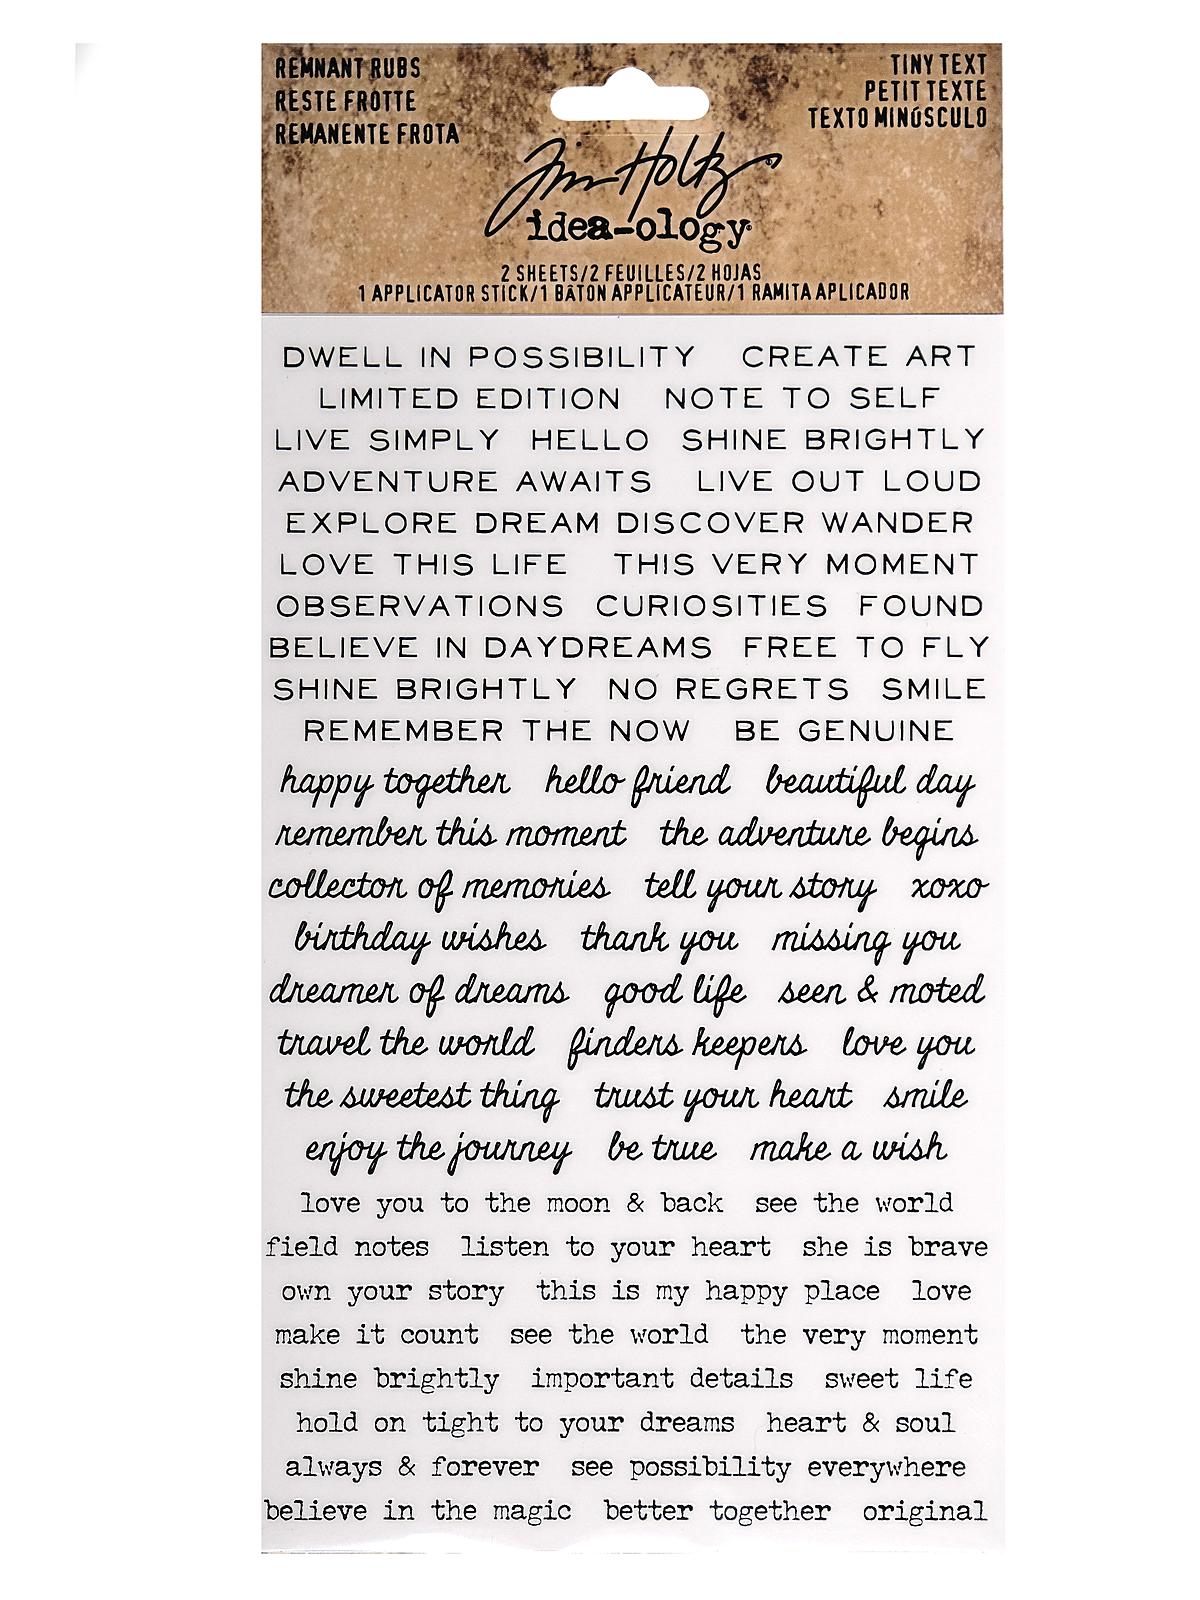 REMNANT RUBS
RESTE FROTTE
REMANENTE FROTA
TINY TEXT
PETIT TEXTE
TEXTO MINÚSCULO
Tim Holtz
idea-ology
2 SHEETS/2 FEUILLES/2 HOJAS
1 APPLICATOR STICK/1 BÂTON APPLICATEUR/1 RAMITA APLICADOR
DWELL IN POSSIBILITY CREATE ART
LIMITED EDITION NOTE TO SELF
LIVE SIMPLY HELLO SHINE BRIGHTLY
ADVENTURE AWAITS LIVE OUT LOUD
EXPLORE DREAM DISCOVER WANDER
LOVE THIS LIFE THIS VERY MOMENT
OBSERVATIONS CURIOSITIES FOUND
BELIEVE IN DAYDREAMS FREE TO FLY
SHINE BRIGHTLY NO REGRETS SMILE
REMEMBER THE NOW BE GENUINE
happy together hello friend beautiful day
remember this moment the adventure begins
collector of memories tell your story xoxo
birthday wishes thank you missing you
dreamer of dreams good life seen & moted
travel the world finders keepers love you
the sweetest thing trust your heart smile
enjoy the journey be true make a wish
love you to the moon & back see the world
field notes listen to your heart she is brave
own your story this is my happy place love
make it count see the world the very moment
shine brightly important details sweet life
hold on tight to your dreams heart & soul
always & forever see possibility everywhere
believe in the magic better together original